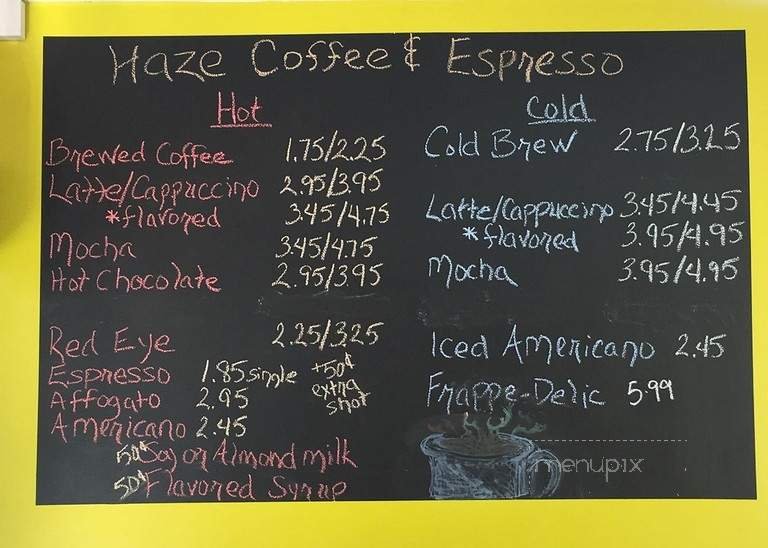 Haze Coffee & Espresso
Hot
Brewed Coffee 1.75/2.25
Latte/Cappuccino 2.95/3.95
*flavored 3.45/4.75
Mocha 3.45/4.75
Hot Chocolate 2.95/3.95
Red Eye 2.25/3.25
Espresso 1.85 single +50¢ extra shot
Affogato 2.95
Americano 2.45
50¢ Soy or Almond milk
50¢ Flavored Syrup
Cold
Cold Brew 2.75/3.25
Latte/Cappuccino 3.45/4.45
*flavored 3.95/4.95
Mocha 3.95/4.95
Iced Americano 2.45
Frappe-Delic 5.99
menupix